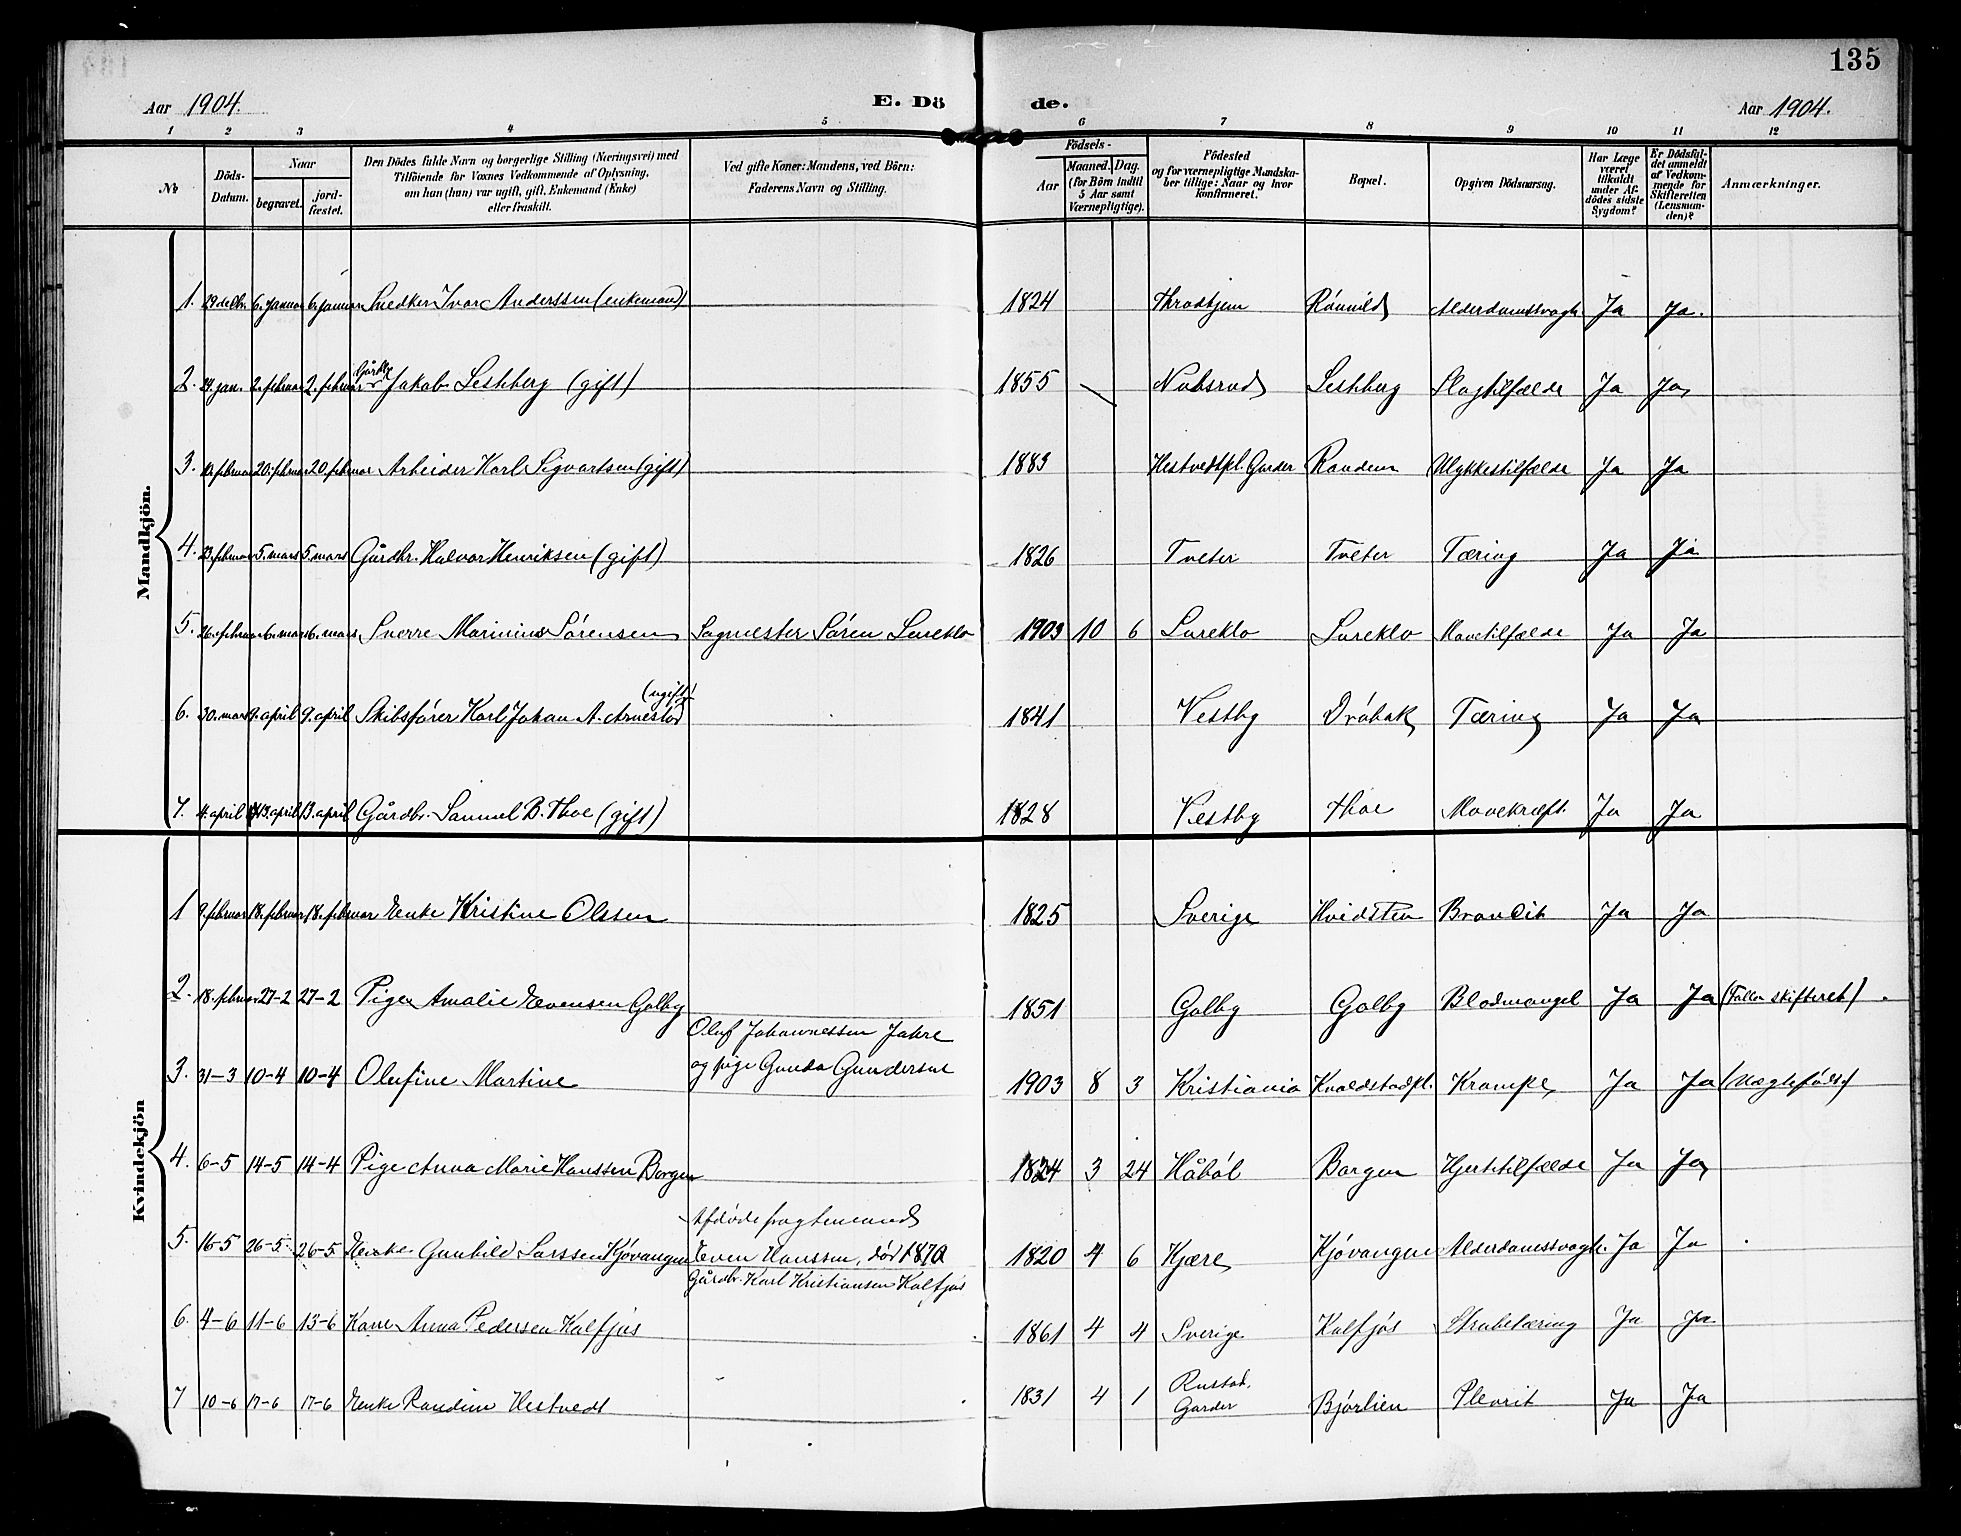 135
Aar 1904. E. Dö de. Aar 1904.
1 2 3 4 5 6 7 8 9 10 11 12
No
Döds-Datum.
Naar
begravet.
jord-fæstet.
Den Dödes fulde Navn og borgerlige Stilling (Næringsvei) med
Tilföiende for Voxnes Vedkommende af Oplysning,
om han (hun) var ugift, gift, Enkemand (Enke)
eller fraskilt.
Ved gifte Koner: Mandens, ved Börn:
Faderens Navn og Stilling.
Födsels-
Aar
Maaned. Dag.
(for Börn indtil
5 Aar samt
Værnepligtige).
Födested
og for værnepligtige Mandska-
ber tillige: Naar og hvor
konfirmeret.
Bopæl.
Opgiven Dödsaarsag.
Har Læge
været
tilkaldt
under Af-
dödes sidste
Sygdom?
Er Dödsfal-
det anmeldt
af Vedkom-
mende for
Skifteretten
(Lensman-
den)?
Anmærkninger.
Mandkjön.
1. 29 decbr. 6. januar 6. januar Snedker Ivar Anderssen (enkemand) 1824 Throdhjem Rámild Alderdomssvagh. Ja Ja.
2. 24. jan. 2. februar 2. februar Gårdbr Jakob Lestberg (gift) 1855 Nubsrud Lestberg Slagtilfælde Ja Ja
3. 12. februar 20. februar 20. februar Arbeider Karl Sigvartsen (gift) 1883 Hestvedtpl. Garder Randem Ulykkestilfælde Ja Ja
4. 23. februar 5. mars 5. mars Gårdbr. Halvor Henriksen (gift) 1826 Tveter Tveter Tæring Ja Ja
5. 26. februar 6. mars 6. mars Sverre Marinius Sørensen Sagmester Søren Sureklo 1903 10 6 Sureklo Sureklo Mavetilfælde Ja Ja
6. 30. mars 9. april 9. april Skibsfører Karl Johan A. Arnestød (ugift) 1841 Vestby Drøbak Tæring Ja Ja
7. 4. april 13. april 13. april Gårdbr. Samuel B. Thoe (gift) 1828 Vestby Thoe Mavekræft. Ja Ja
Kvindekjön
1 9. februar 18. februar 18. februar Enke Kristine Olssen 1825 Sverige Hvidsten Broncit Ja Ja
2. 18. februar 27-2 27-2 Pige Amalie Evensen Galby 1851 Galby Galby Blodmangel Ja Ja (Follo skifteret)
Oluf Johannessen Jahre
3. 31-3 10-4 10-4 Olufine Martine og pige Gunda Gundersen 1903 8 3 Kristiania Kvaldstadpl. Krampe Ja Ja (Uægtefødt)
4. 6-5 14-5 14-4 Pige Anna Marie Hanssen Borgen 1824 3 24 Håbøl Borgen Hjertetilfælde Ja Ja
Afdøde fragtemand
5. 16-5 26-5. 26-5 Enke Gunhild Larssen Kjøvangen Even Hanssen, død 1870 1820 4 6 Kjære Kjøvangen Alderdomssvagh. Ja Ja
Gårdbr. Karl Kristiansen Kalfjøs
6. 4-6 11-6 13-6 Kone Anna Pedersen Kalfjøs 1861 4 4 Sverige Kalfjøs Strubetæring Ja Ja
7 10-6 17-6 17-6 Enke Randine Hestvedt 1831 4 1 Rustad, Garder Bjørlien Plevrit Ja Ja